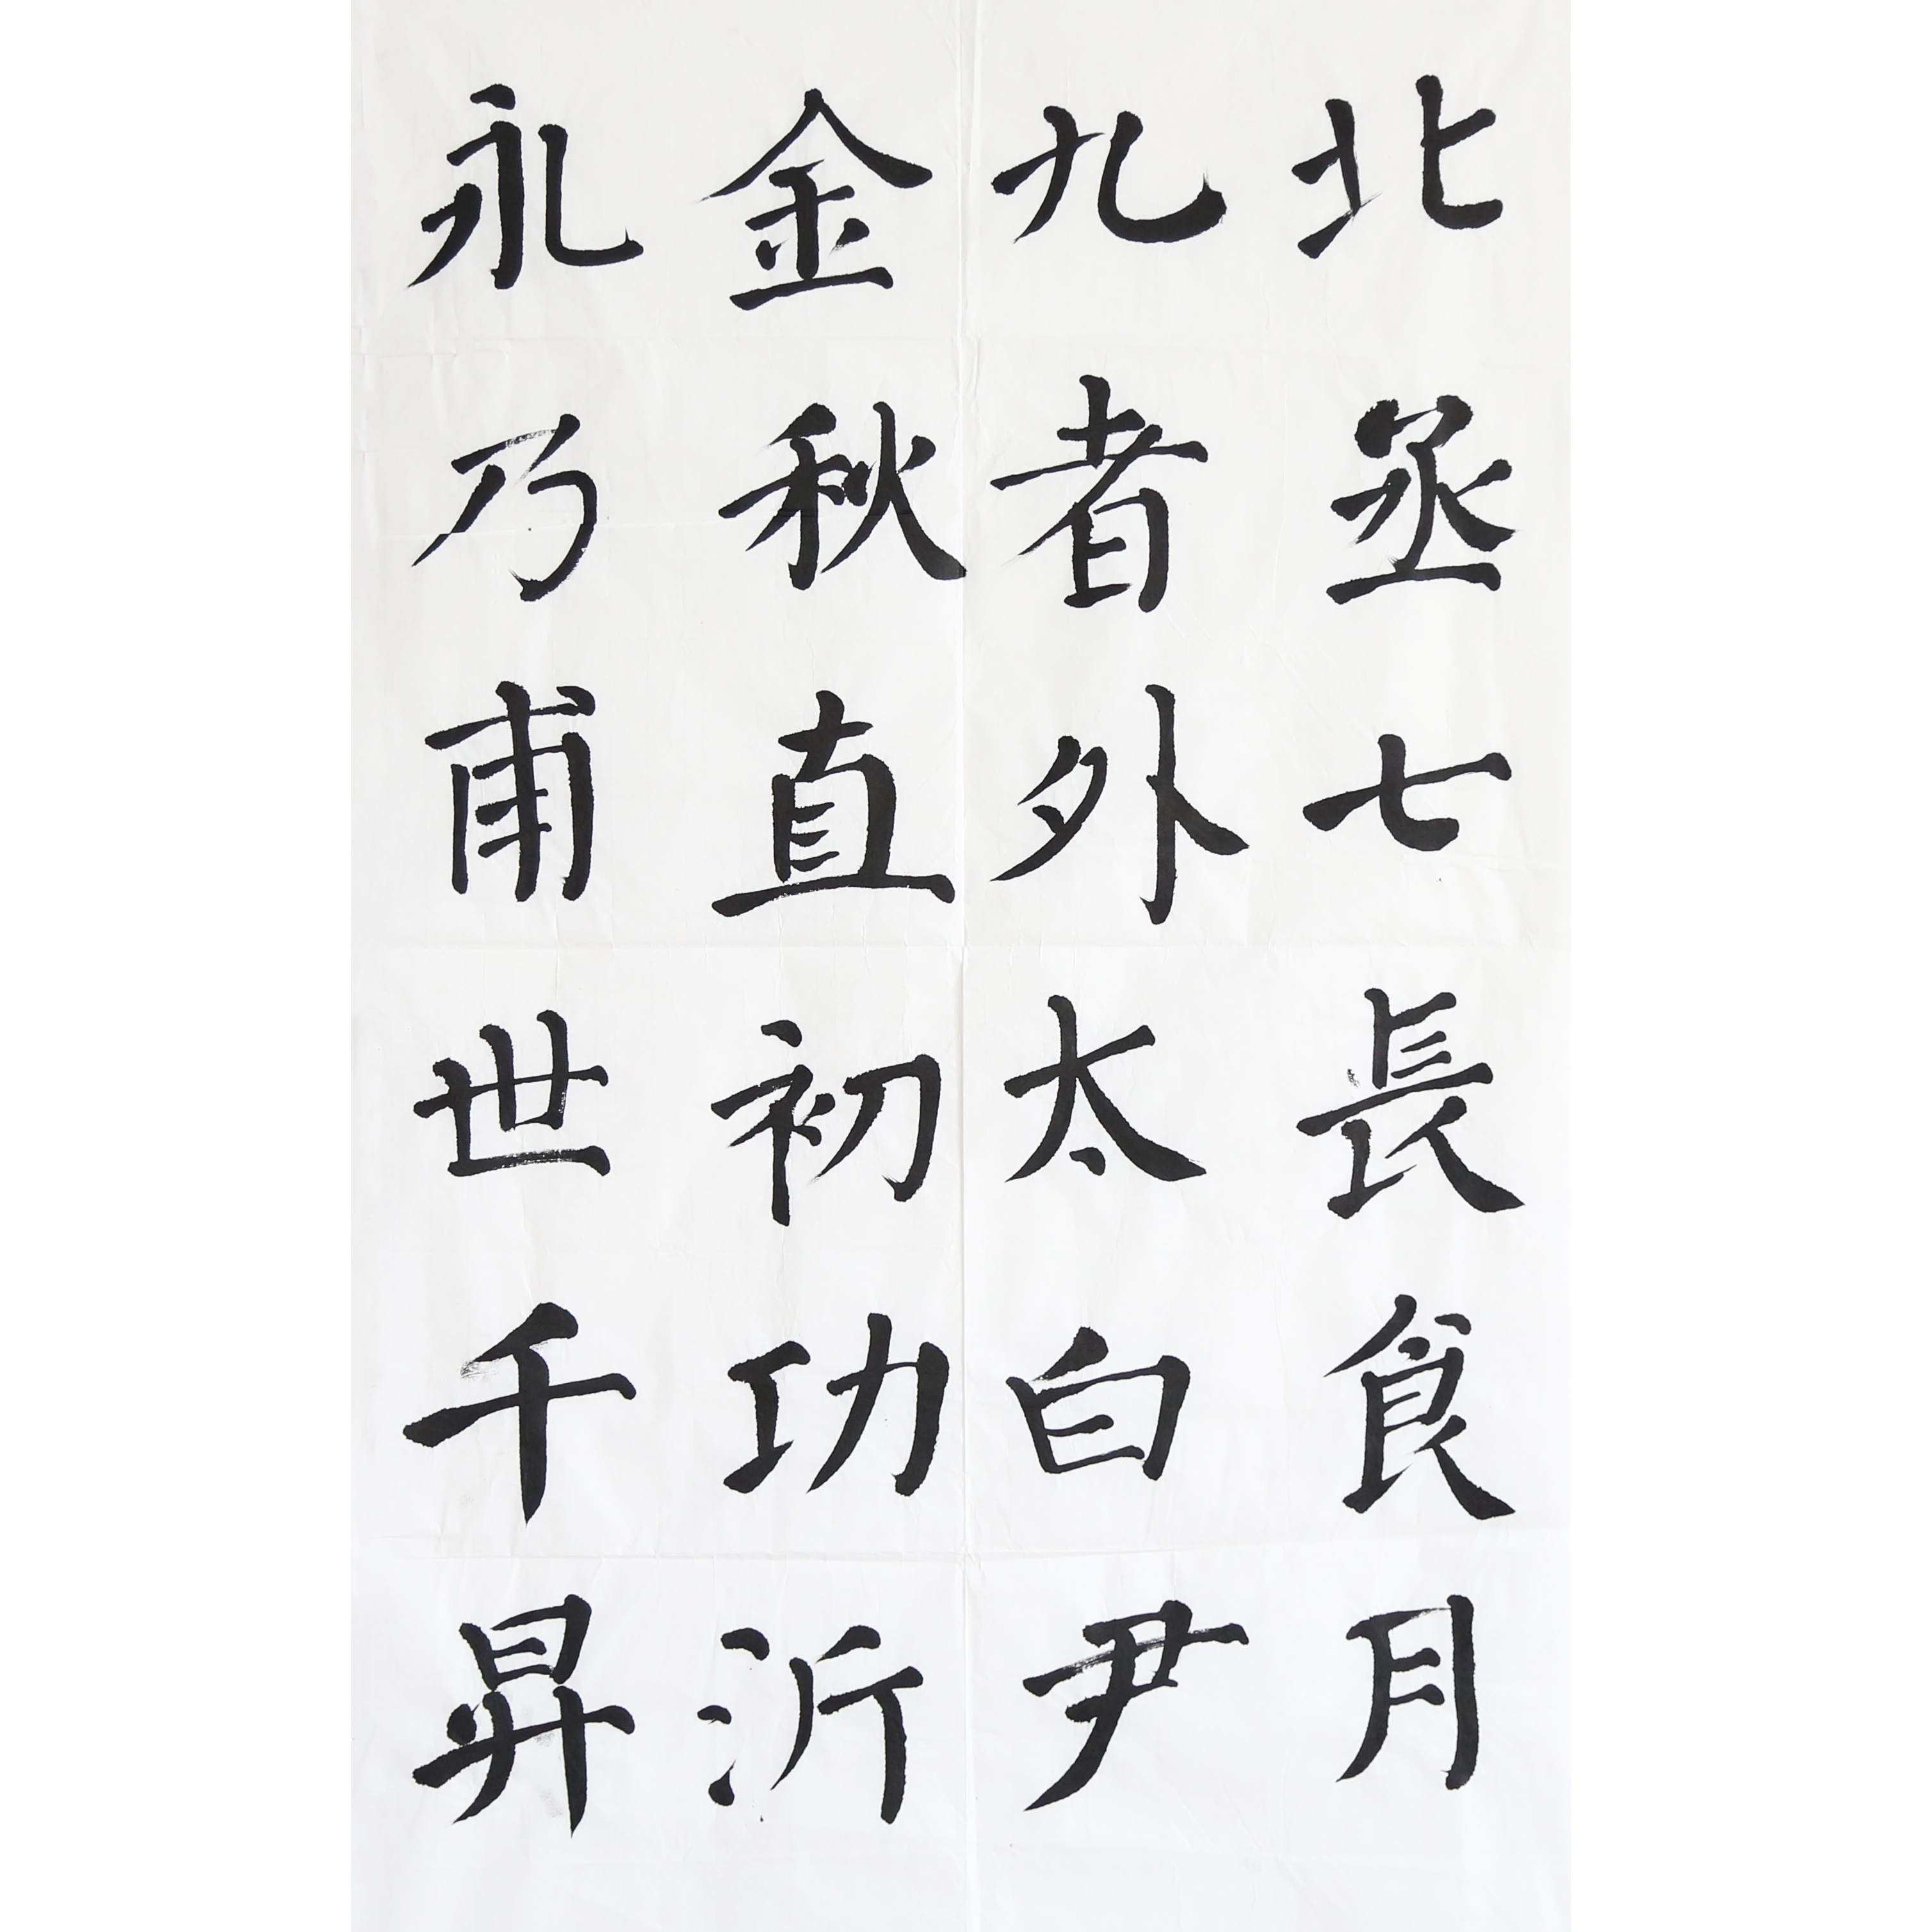 北丞七長食月
九者外太白尹
金秋直初功沂
永乃甫世千昇